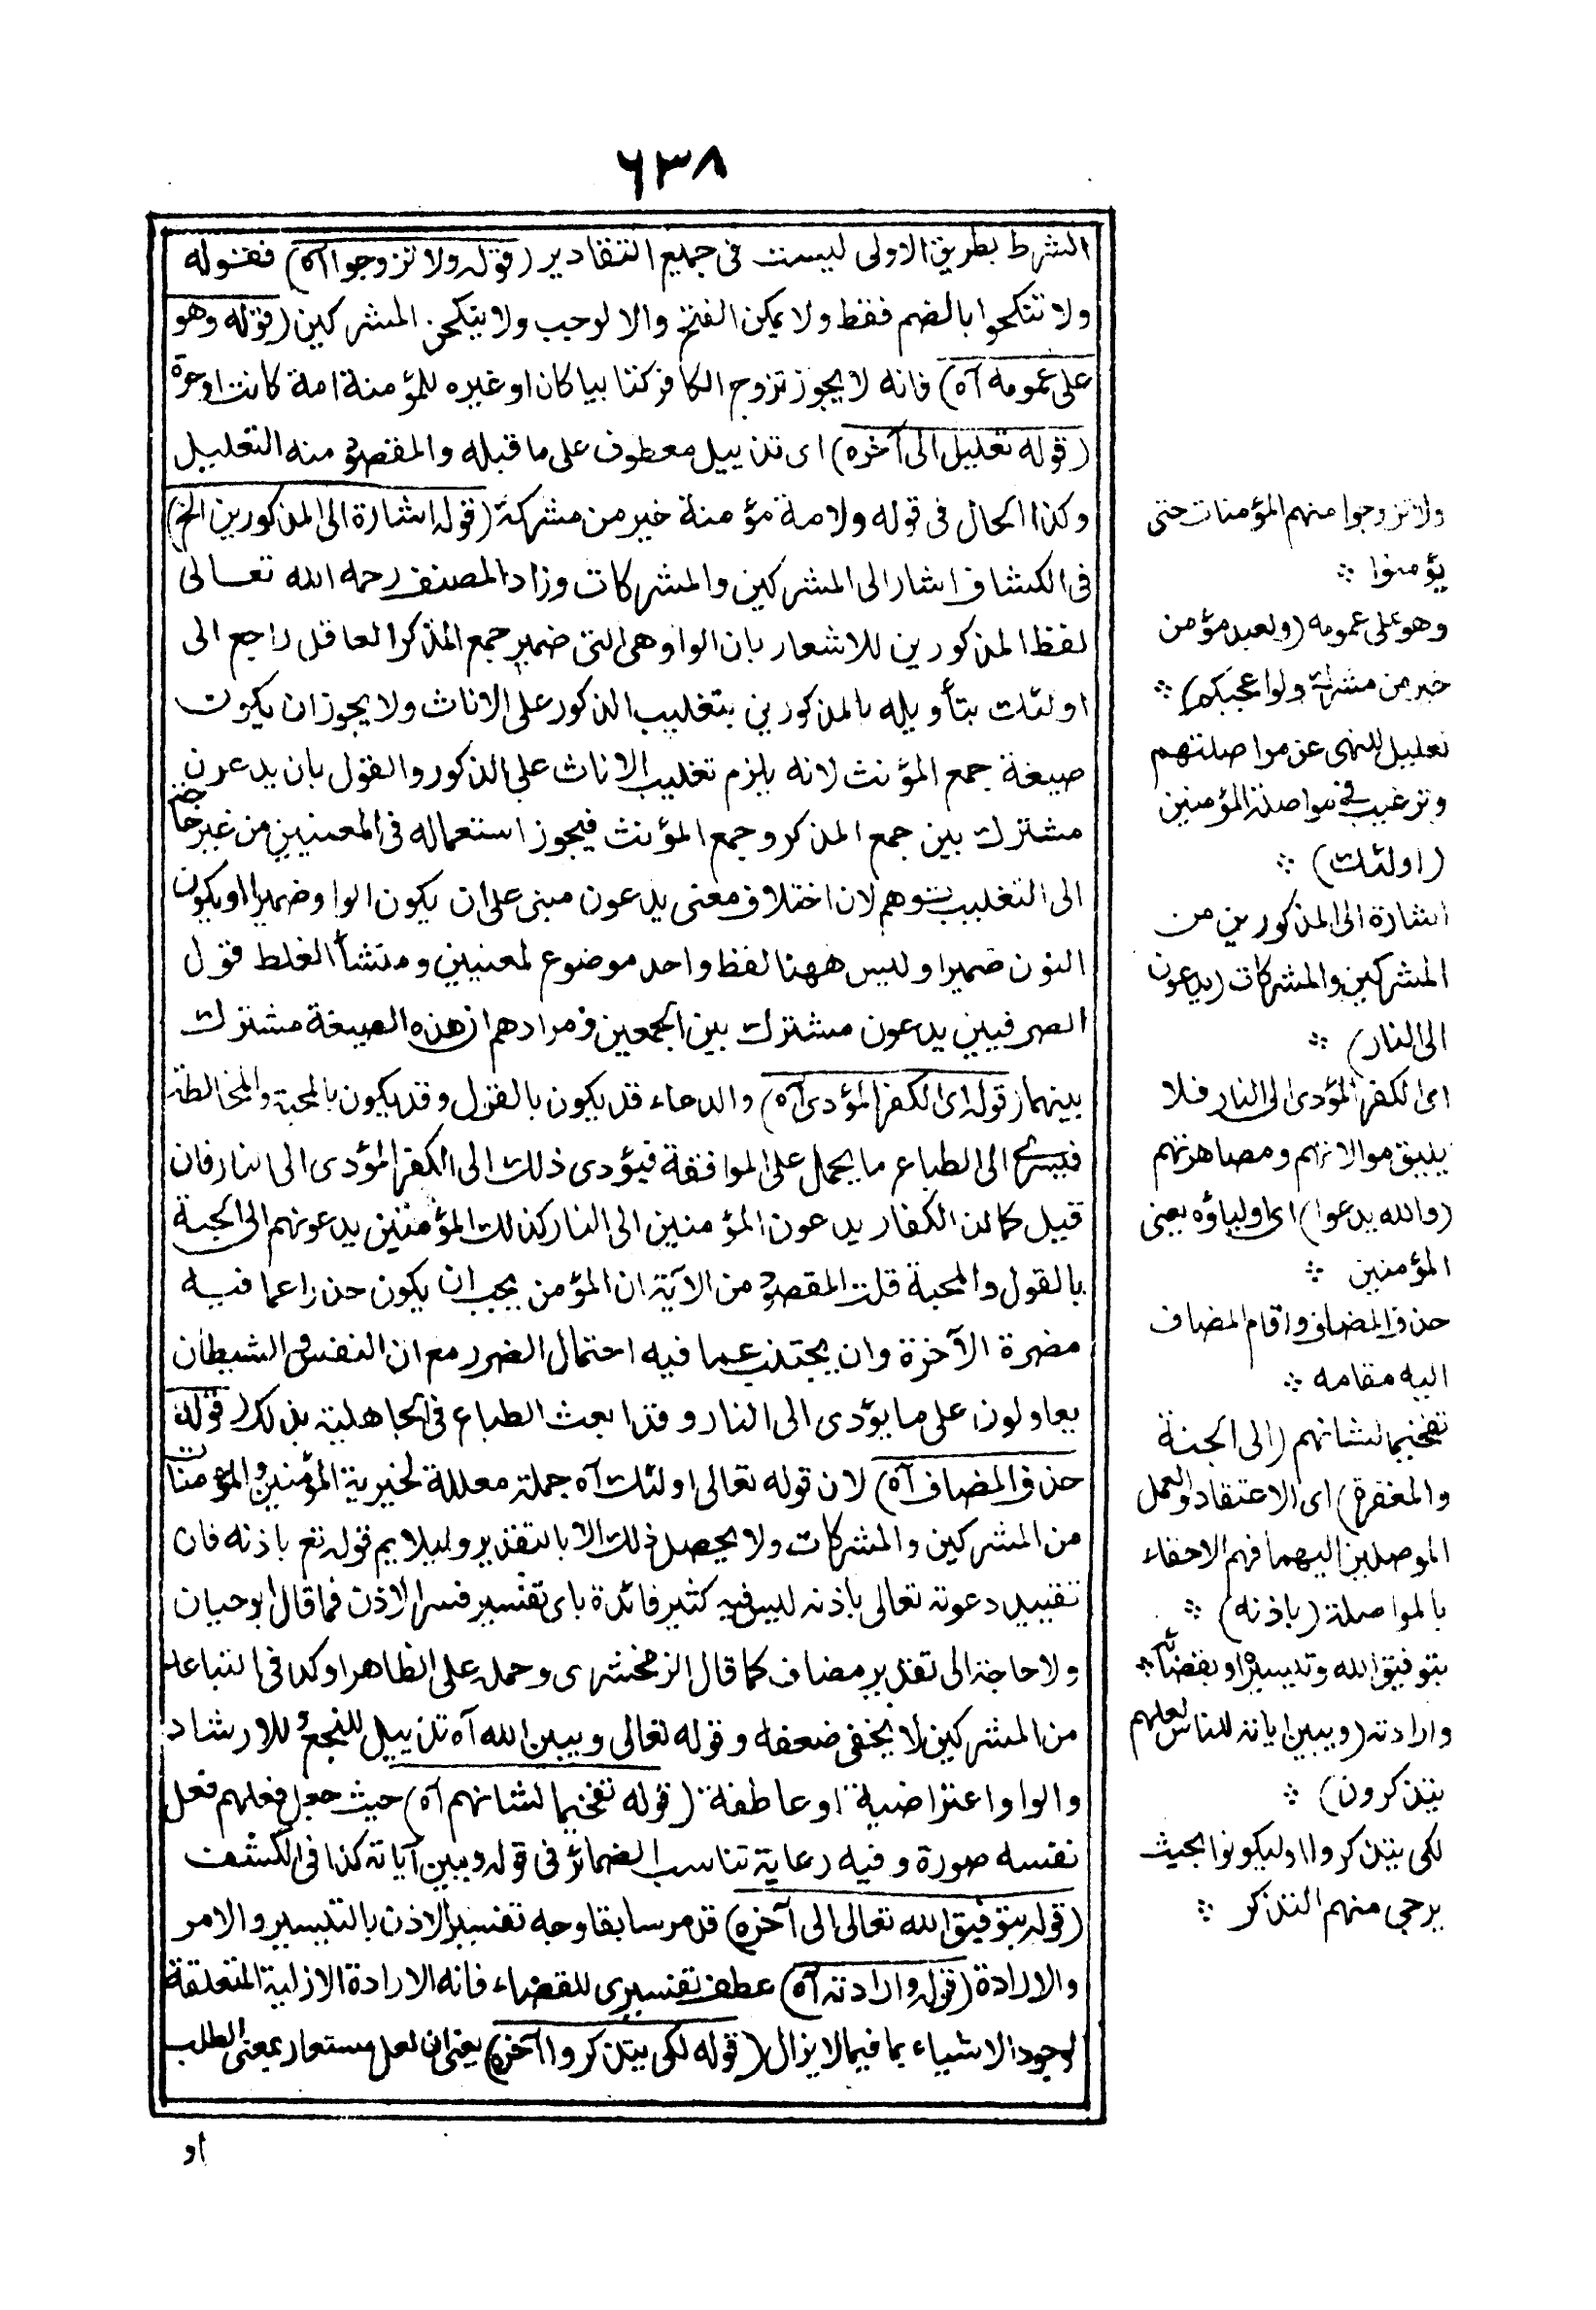 ٦٣٨
الشرط بطريق الاولى ليست فى جميع التقادير (قوله ولا تزوجوا آه) فقوله
ولا تنكحوا بالضم فقط ولا يمكن الفتح والا لوجب ولا ينكحن المشركين (قوله وهو
على عمومه آه) فانه لا يجوز تزوج الكافر كتابيا كان او غيره للمؤمنة امة كانت او حرة
(قوله تعليل الى آخره) اى تذييل معطوف على ما قبله والمقصود منه التعليل
وكذا الحال فى قوله ولامة مؤمنة خير من مشركة (قوله اشارة الى المذكورين الخ)
فى الكشاف اشار الى المشركين والمشركات وزاد المصنف رحمه الله تعالى
لفظ المذكورين للاشعار بان الواو هى التى ضمير جمع المذكر العاقل راجع الى
اولئك بتأويله بالمذكورين بتغليب الذكور على الاناث ولا يجوز ان يكون
صيغة جمع المؤنث لانه يلزم تغليب الاناث على الذكور والقول بان يدعون
مشترك بين جمع المذكر وجمع المؤنث فيجوز استعماله فى المعنيين من غير حاجة
الى التغليب توهم لان اختلاف معنى يدعون مبنى على ان يكون الواو ضميرا او يكون
النون ضميرا وليس ههنا لفظ واحد موضوع لمعنيين ومنشأ الغلط قول
الصرفيين يدعون مشترك بين الجمعين ومرادهم ان هذه الصيغة مشترك
بينهما (قوله اى الكفر المؤدى آه) والدعاء قد يكون بالقول وقد يكون بالمحبة والمخالطة
فيسرى الى الطباع ما يحمل على الموافقة فيؤدى ذلك الى الكفر المؤدى الى النار فان
قيل كما ان الكفار يدعون المؤمنين الى النار كذلك المؤمنين يدعونهم الى الجنة
بالقول والمحبة قلت المقصود من الآية ان المؤمن يجب ان يكون حذرا عما فيه
مضرة الآخرة وان يجتنب عما فيه احتمال الضرر مع ان النفس والشيطان
يعاولون على ما يؤدى الى النار وقد ابعث الطباع فى الجاهلية بذلك (قوله
حذف المضاف آه) لان قوله تعالى اولئك آه جملة معللة لخيرية المؤمنين والمؤمنات
من المشركين والمشركات ولا يحصل ذلك الا بالتقدير وليلايم قوله تع باذنه فان
تقييد دعوته تعالى باذنه ليس فيه كثير فائدة باى تفسير فسر الاذن فما قال ابو حيان
ولا حاجة الى تقدير مضاف كما قال الزمخشرى وحمله على الظاهر اوكد فى التباعد
من المشركين لا يخفى ضعفه وقوله تعالى ويبين الله آه تذييل للنجع وللارشاد
والواو اعتراضية او عاطفة (قوله تفخيما لشانهم آه) حيث جعل فعلهم فعل
نفسه صورة وفيه رعاية تناسب الضمائر فى قوله ويبين آياته كذا فى الكشف
(قوله بتوفيق الله تعالى الى آخره) قد مر سابقا وجه تفسير الاذن بالتيسير والامر
والارادة (قوله وارادته آه) عطف تفسيرى للقضاء فانه الارادة الازلية المتعلقة
لوجود الاشياء بما فيما لا يزال (قوله لكى يتذكروا آخره) يعنى ان لعل مستعار بمعنى الطلب
او
ولا تزوجوا منهم المؤمنات حتى
يؤمنوا
وهو على عمومه (ولعبد مؤمن
خير من مشرك ولو اعجبكم)
تعليل للنهى عن مواصلتهم
وترغيب فى مواصلة المؤمنين
(اولئك)
اشارة الى المذكورين من
المشركين والمشركات (يدعون
الى النار)
اى الكفر المؤدى الى النار فلا
يليق موالاتهم ومصاهرتهم
(والله يدعوا) اى اولياؤه يعنى
المؤمنين
حذف المضاف واقام المضاف
اليه مقامه
تفخيما لشانهم (الى الجنة
والمغفرة) اى الاعتقاد والعمل
الموصلين اليهما فهم الاحقاء
بالمواصلة (باذنه)
بتوفيق الله وتيسيره او بقضائه
وارادته (ويبين اياته للناس لعلهم
يتذكرون)
لكى يتذكروا او ليكونوا بحيث
يرجى منهم التذكر